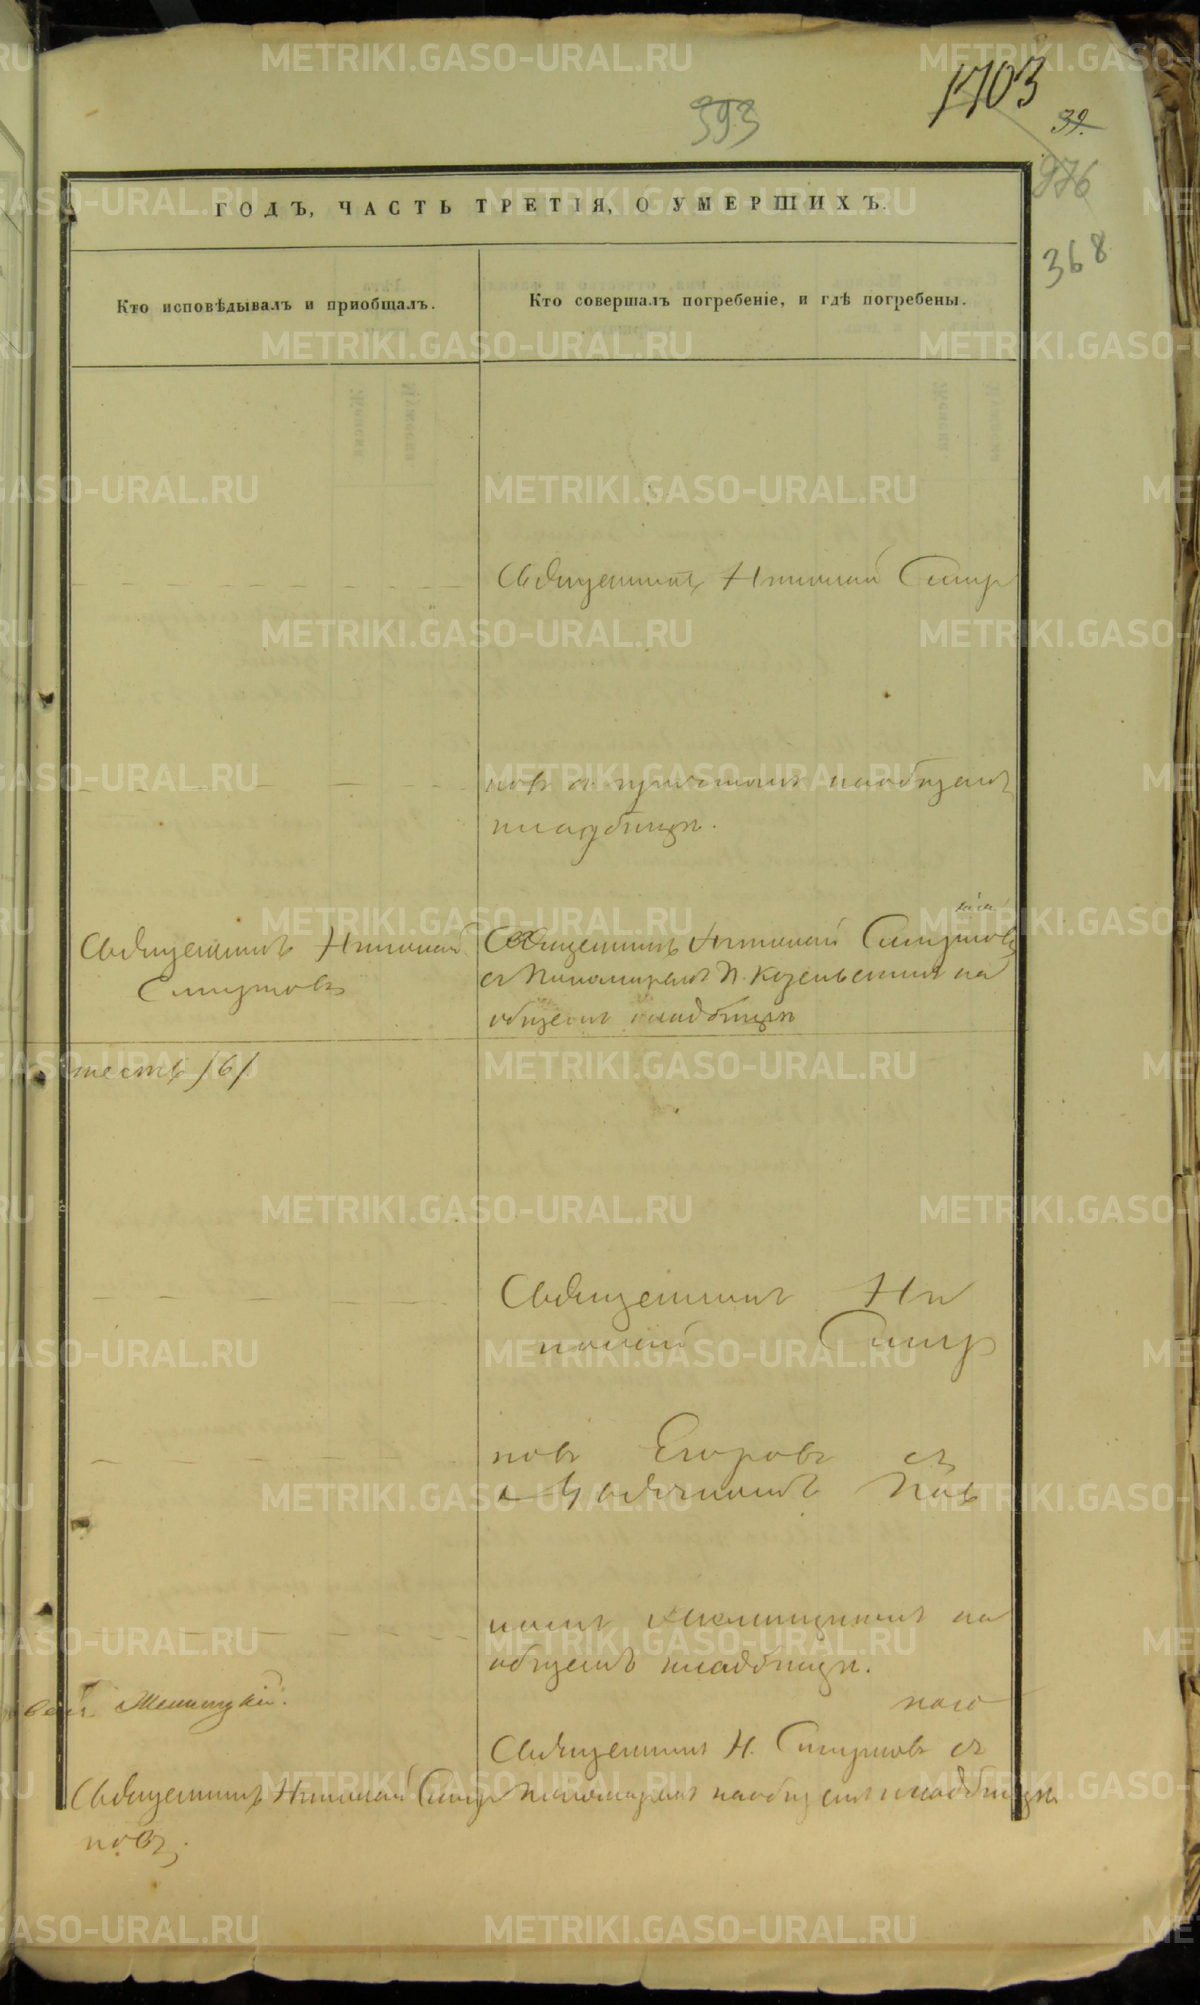 1703
393
39.
976
368
ГОДЪ, ЧАСТЬ ТРЕТІЯ, О УМЕРШИХЪ.
Кто исповѣдывалъ и приобщалъ.
Кто совершалъ погребеніе, и гдѣ погребены.
Священникъ Николай Смир
новъ с причтомъ на общемъ
кладбищѣ.
Священникъ Николай
Смирновъ
Священникъ Николай Смирновъ
съ Пономаремъ П. на
общемъ кладбищѣ
шесть /6/
Священникъ Ни
колай Смир
новъ Егоровъ съ
Пав
на
общемъ кладбищѣ.
Священникъ Н. Смирновъ съ
Священникъ Николай Смир
новъ;
Пономаремъ на общемъ кладбищѣ
METRIKI.GASO-URAL.RU